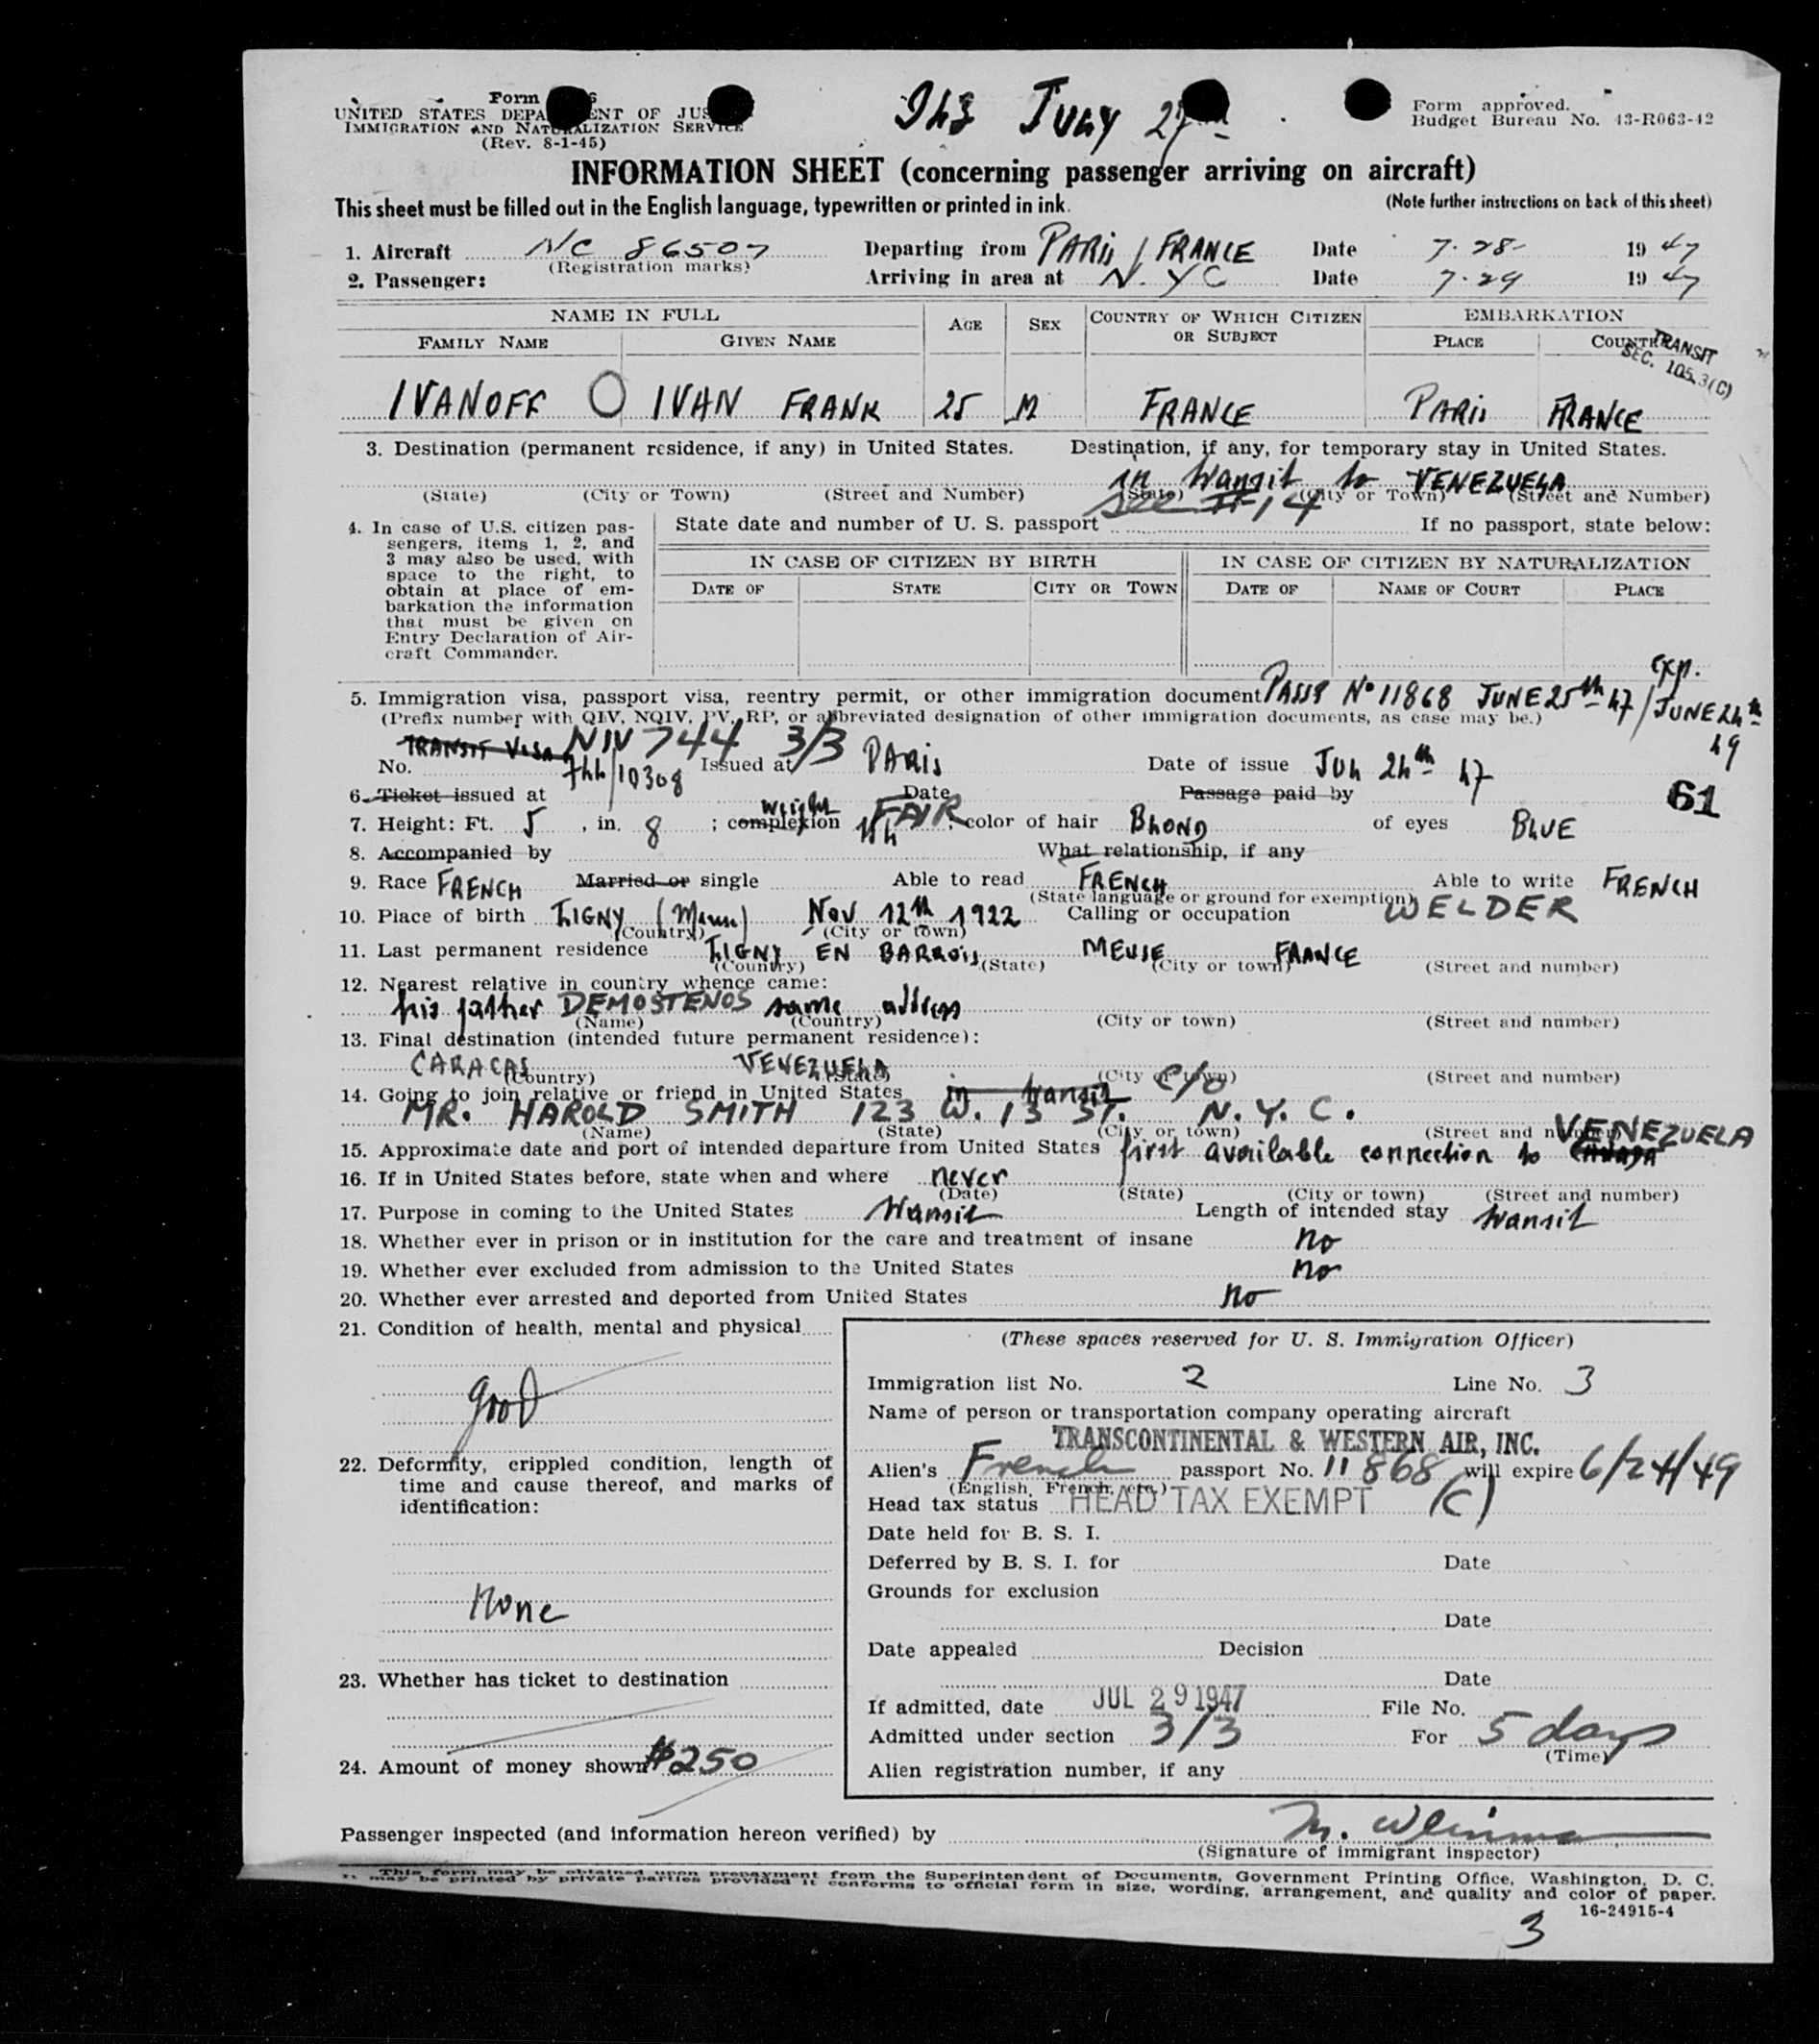 Form
UNITED STATES DEPARTMENT OF JUSTICE
IMMIGRATION AND NATURALIZATION SERVICE
(Rev. 8-1-45)
943 JULY 27th
Form approved.
Budget Bureau No. 43-R063-42
INFORMATION SHEET (concerning passenger arriving on aircraft)
This sheet must be filled out in the English language, typewritten or printed in ink.
(Note further instructions on back of this sheet)
1. Aircraft NC 86507 Departing from PARIS / FRANCE Date 7-28- 1947
(Registration marks)
2. Passenger: Arriving in area at N.YC Date 7-29 1947
NAME IN FULL AGE SEX COUNTRY OF WHICH CITIZEN OR SUBJECT EMBARKATION
FAMILY NAME GIVEN NAME PLACE COUNTRY
TRANSIT
SEC. 105.3(C)
IVANOFF O IVAN FRANK 25 M FRANCE PARIS FRANCE
3. Destination (permanent residence, if any) in United States. Destination, if any, for temporary stay in United States.
in transit to VENEZUELA
(State) (City or Town) (Street and Number) (State) (City or Town) (Street and Number)
see #14
4. In case of U.S. citizen passengers, items 1, 2, and
3 may also be used, with
space to the right, to
obtain at place of embarkation the information
that must be given on
Entry Declaration of Aircraft Commander.
State date and number of U. S. passport If no passport, state below:
IN CASE OF CITIZEN BY BIRTH IN CASE OF CITIZEN BY NATURALIZATION
DATE OF STATE CITY OR TOWN DATE OF NAME OF COURT PLACE
exp.
5. Immigration visa, passport visa, reentry permit, or other immigration document PASSP No 11868 JUNE 25th 47 / JUNE 24th 49
(Prefix number with QIV, NQIV, PV, RP, or abbreviated designation of other immigration documents, as case may be.)
TRANSIT VISA NIV 744 3/3
No. 744/10308 Issued at PARIS Date of issue JUL 24th 47
6. Ticket issued at Date Passage paid by
61
7. Height: Ft. 5, in. 8; complexion weight FAIR 154, color of hair BLOND of eyes BLUE
8. Accompanied by What relationship, if any
9. Race FRENCH Married or single Able to read FRENCH Able to write FRENCH
(State language or ground for exemption)
10. Place of birth LIGNY (Meuse) Nov 12th 1922 Calling or occupation WELDER
(Country) (City or town)
11. Last permanent residence LIGNY EN BARROIS MEUSE FRANCE
(Country) (State) (City or town) (Street and number)
12. Nearest relative in country whence came:
his father DEMOSTENOS same address
(Name) (Country) (City or town) (Street and number)
13. Final destination (intended future permanent residence):
CARACAS VENEZUELA
(Country) (State) (City or town) (Street and number)
14. Going to join relative or friend in United States in transit c/o
MR. HAROLD SMITH 123 W. 13 ST. N.Y.C.
(Name) (State) (City or town) (Street and number)
15. Approximate date and port of intended departure from United States first available connection to CANADA VENEZUELA
16. If in United States before, state when and where never
(Date) (State) (City or town) (Street and number)
17. Purpose in coming to the United States transit Length of intended stay transit
18. Whether ever in prison or in institution for the care and treatment of insane no
19. Whether ever excluded from admission to the United States no
20. Whether ever arrested and deported from United States no
21. Condition of health, mental and physical
good
22. Deformity, crippled condition, length of
time and cause thereof, and marks of
identification:
None
23. Whether has ticket to destination
24. Amount of money shown $250
(These spaces reserved for U. S. Immigration Officer)
Immigration list No. 2 Line No. 3
Name of person or transportation company operating aircraft
TRANSCONTINENTAL & WESTERN AIR, INC.
Alien's French passport No. 11868 will expire 6/24/49
(English, French, etc.)
Head tax status HEAD TAX EXEMPT (C)
Date held for B. S. I.
Deferred by B. S. I. for Date
Grounds for exclusion
Date
Date appealed Decision
Date
If admitted, date JUL 29 1947 File No.
Admitted under section 3/3 For 5 days
(Time)
Alien registration number, if any
Passenger inspected (and information hereon verified) by
(Signature of immigrant inspector)
This form may be obtained upon prepayment from the Superintendent of Documents, Government Printing Office, Washington, D. C.
It may be printed by private parties provided it conforms to official form in size, wording, arrangement, and quality and color of paper.
16-24915-4
3